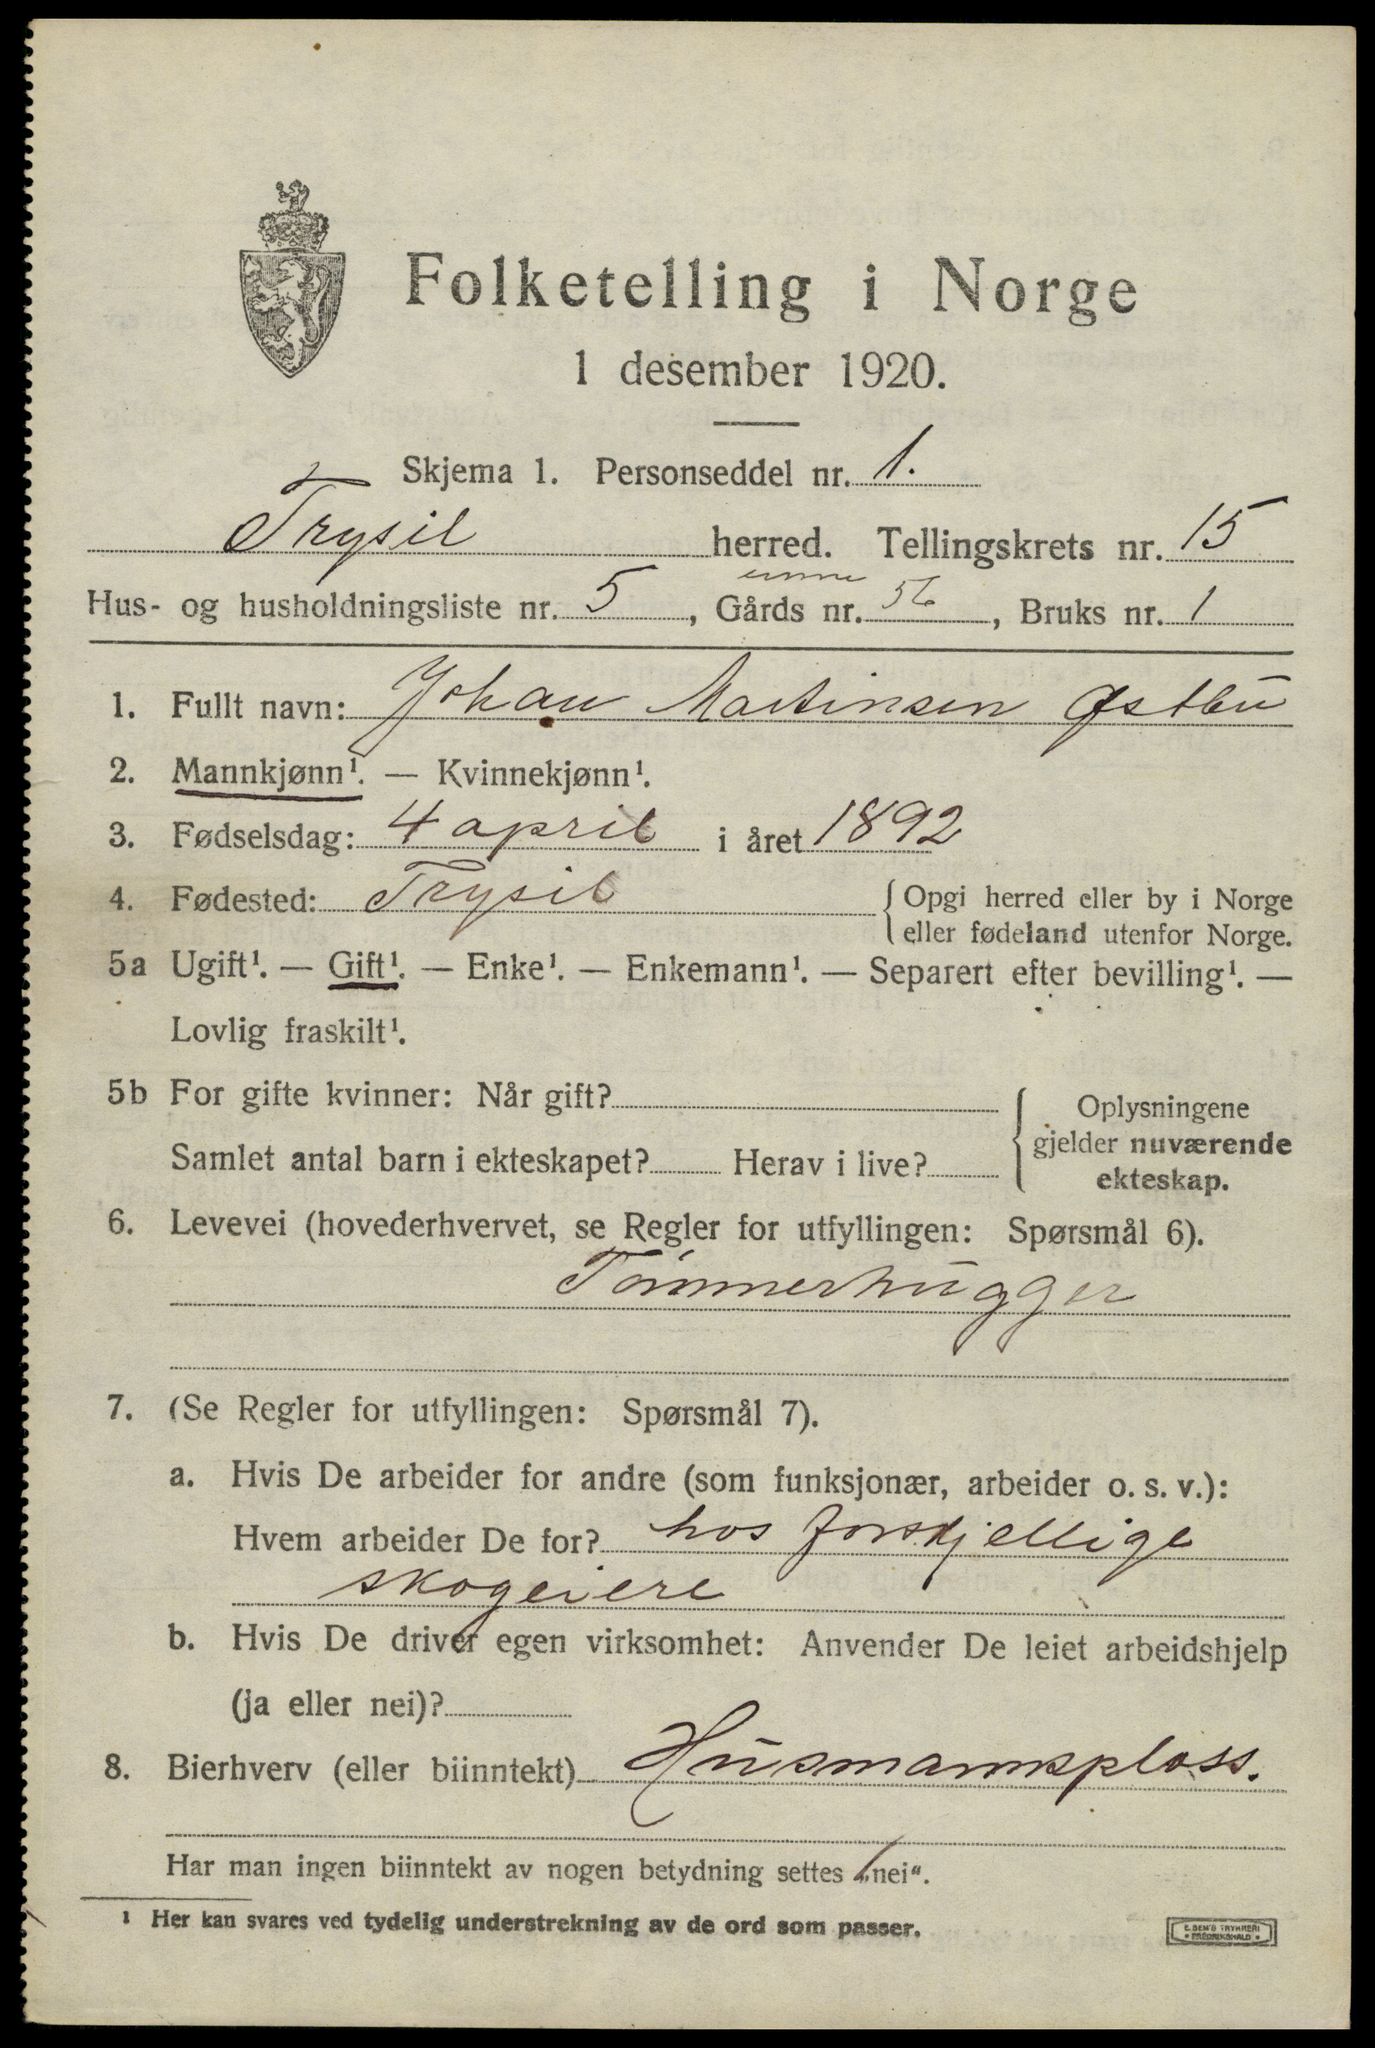 Folketelling i Norge
1 desember 1920.
Skjema 1. Personseddel nr. 1.
Trysil herred. Tellingskrets nr. 15
Hus- og husholdningsliste nr. 5, Gårds nr. 56, Bruks nr. 1
1. Fullt navn: Johan Martinsen Østbu
2. Mannkjønn¹. — Kvinnekjønn¹.
3. Fødselsdag: 4 april i året 1892
4. Fødested: Trysil {Opgi herred eller by i Norge
eller fødeland utenfor Norge.
5a Ugift¹. — Gift¹. — Enke¹. — Enkemann¹. — Separert efter bevilling¹. —
Lovlig fraskilt¹.
5b For gifte kvinner: Når gift? { Oplysningene
gjelder nuværende
Samlet antal barn i ekteskapet? Herav i live?
ekteskap.
6. Levevei (hovederhvervet, se Regler for utfyllingen: Spørsmål 6).
Tømmerhugger
7. (Se Regler for utfyllingen: Spørsmål 7).
a. Hvis De arbeider for andre (som funksjonær, arbeider o. s. v.):
Hvem arbeider De for? hos forskjellige
skogeiere
b. Hvis De driver egen virksomhet: Anvender De leiet arbeidshjelp
(ja eller nei)?
8. Bierhverv (eller biinntekt) Husmannsplass.
Har man ingen biinntekt av nogen betydning settes „nei“.
¹ Her kan svares ved tydelig understrekning av de ord som passer.
E. SEM'S TRYKKERI
• FREDRIKSHALD •